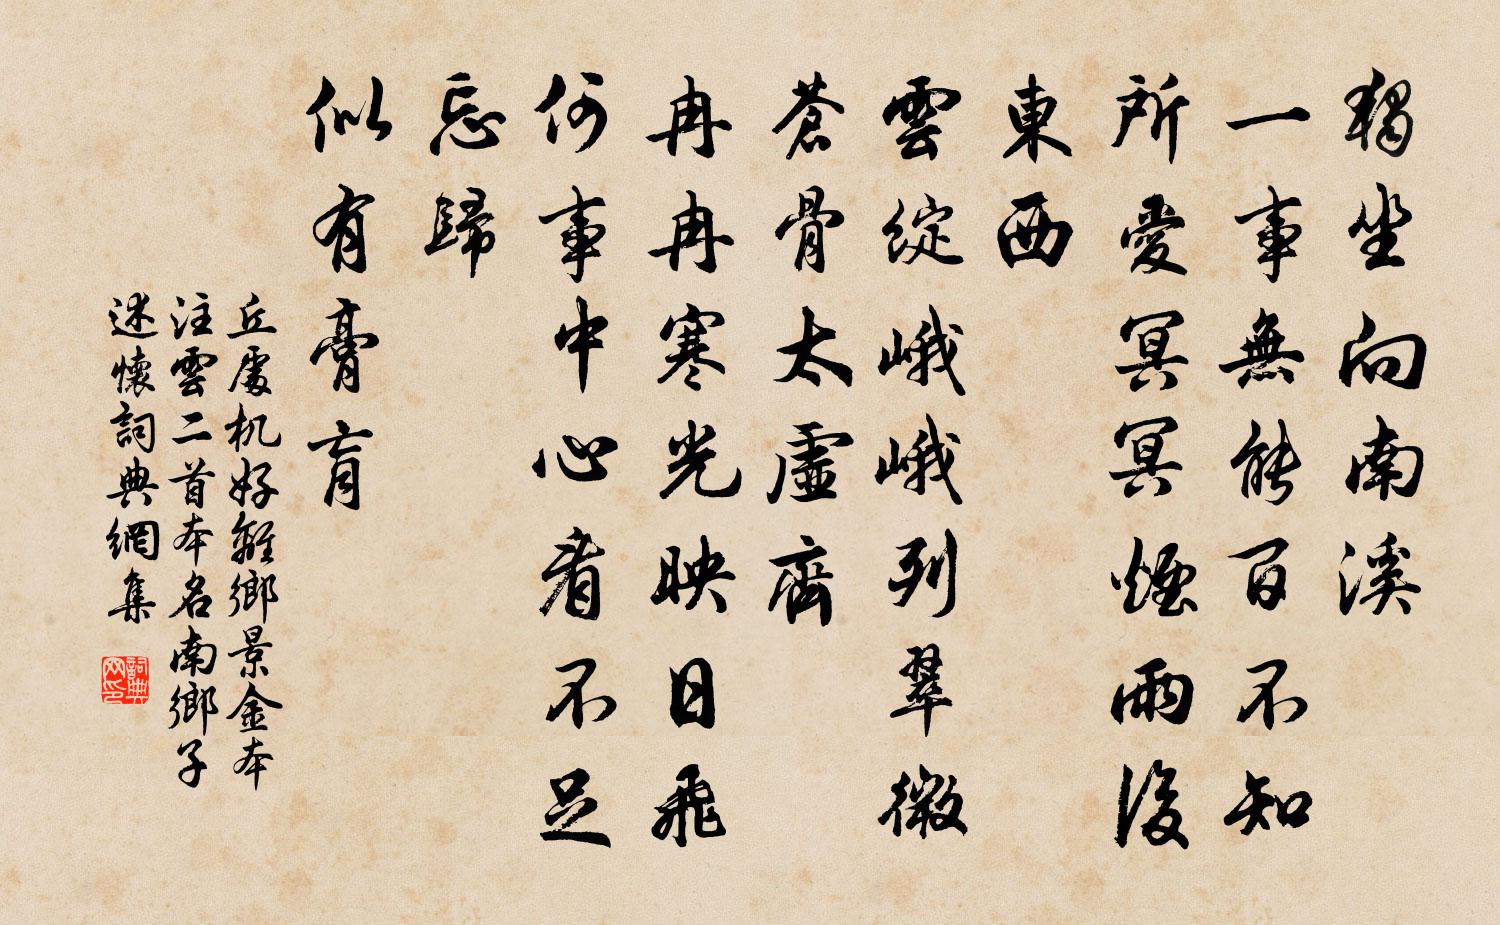 獨坐向南溪
一事無能百不知
所愛冥冥煙雨後
東西
雲綻峨峨列翠微
蒼骨太虛齊
冉冉寒光映日飛
何事中心看不足
忘歸
似有膏肓
丘處机好離鄉景金本
注雲二首本名南鄉子
述懷詞典網集
詞典
网印